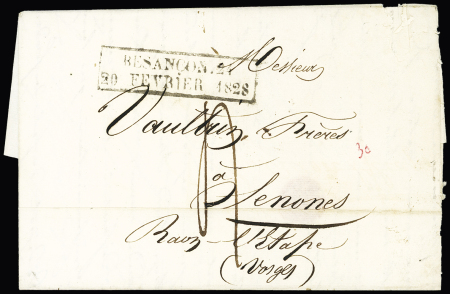 BESANÇON.
29 FEVRIER 1828
à Messieurs
Vautrin, Frères
30
à
Senones
Raon-l'Etape
(Vosges)